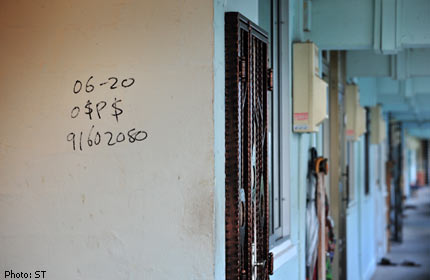 06-20
O$P$
91602080
Photo: ST